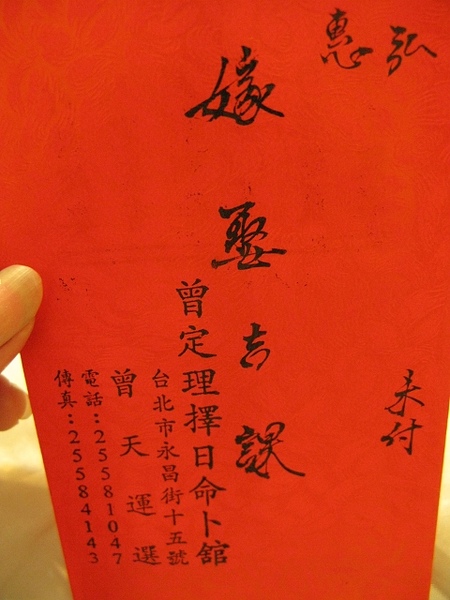 惠弘
未付
嫁娶吉課
曾定理擇日命卜舘
台北市永昌街十五號
曾天運選
電話：25581047
傳真：25584143